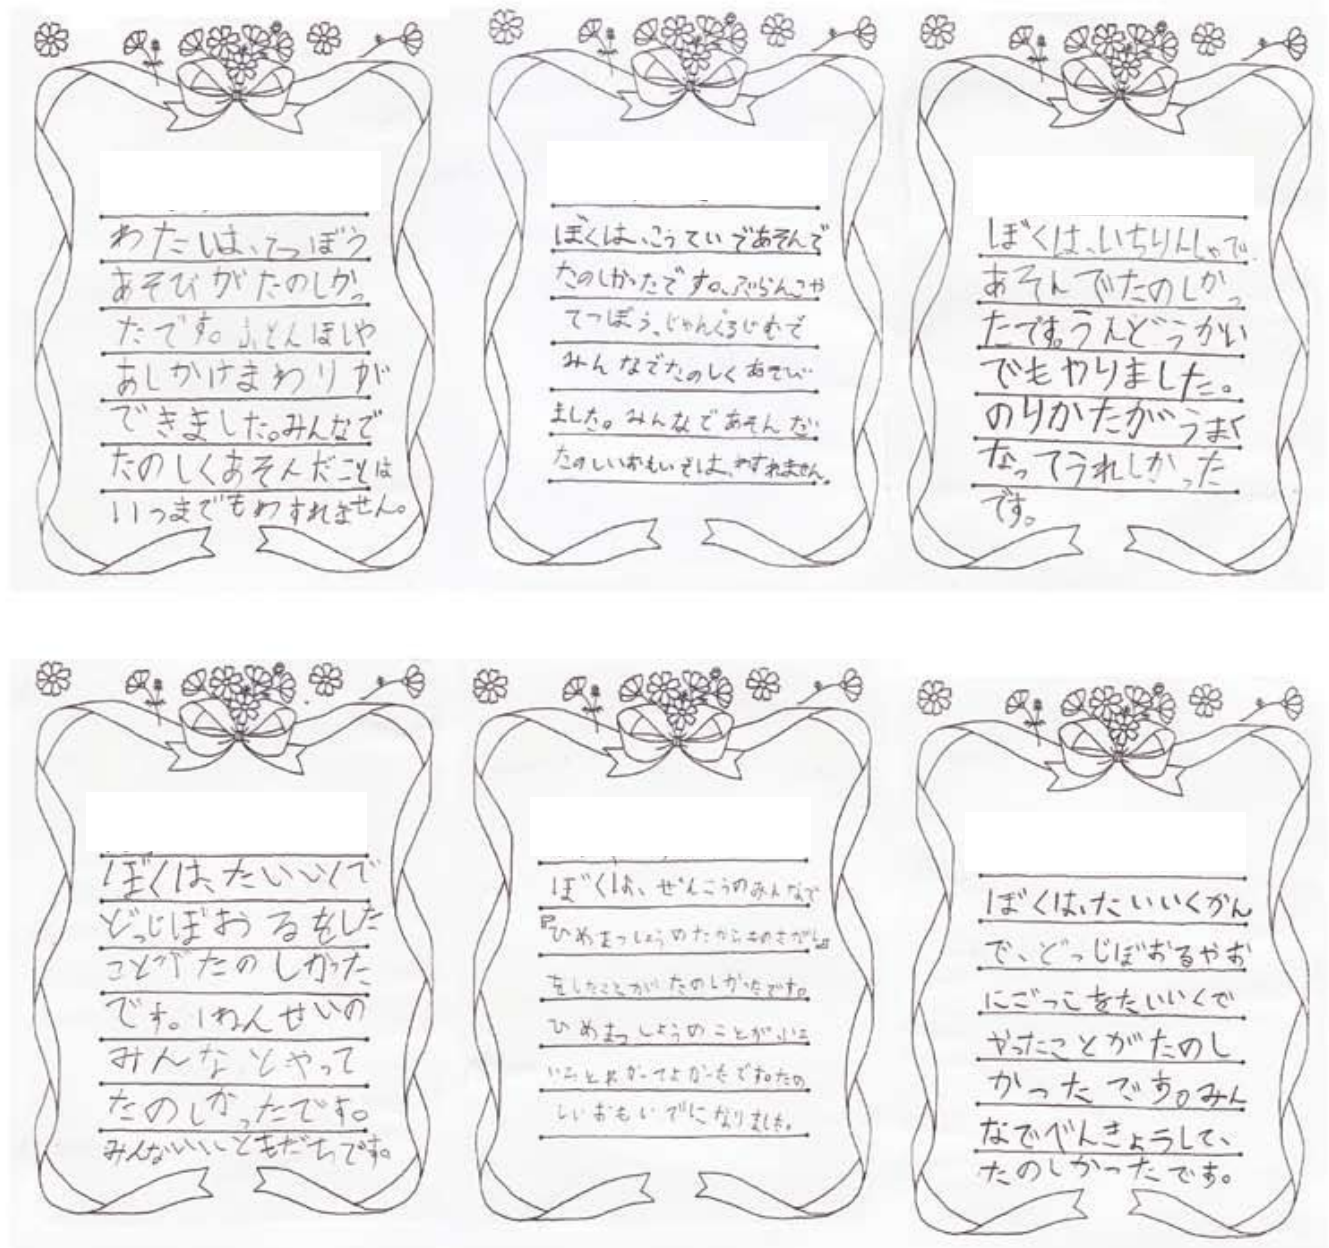 わたしは、てつぼう
あそびがたのしかっ
たです。ふとんほしや
あしかけまわりが
できました。みんなで
たのしくあそんだことは
いつまでもわすれません。
ぼくは、こうていであそんで
たのしかったです。ぶらんこや
てつぼう、じゃんぐるじむで
みんなでたのしくあそび
ました。みんなであそんだ
たのしいおもいでは、わすれません。
ぼくは、いちりんしゃで
あそんでたのしかっ
たです。うんどうかい
でもやりました。
のりかたがうまく
なってうれしかった
です。
ぼくは、たいいくで
どっじぼおるをした
ことがたのしかった
です。1ねんせいの
みんなとやって
たのしかったです。
みんないいともだちです。
ぼくは、ぜんこうのみんなで
『ひめまつしょうのたからものさがし』
をしたことがたのしかったです。
ひめまつしょうのことが
てよかったです。たの
しいおもいでになりました。
ぼくは、たいいくかん
で、どっじぼおるやお
にごっこをたいいくで
やったことがたのし
かったです。みん
なでべんきょうして、
たのしかったです。